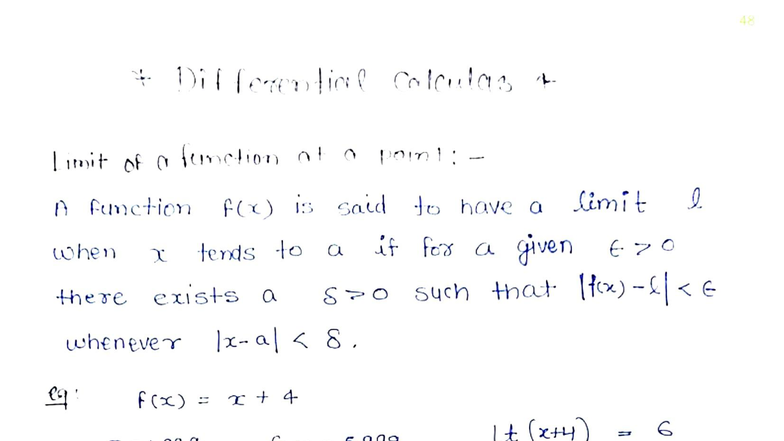 48
* Differential calculas *
Limit of a function at a point: -
A function f(x) is said to have a limit l
when x tends to a if for a given ϵ > 0
there exists a δ > 0 such that |f(x) - l| < ϵ
whenever |x - a| < δ.
eg: f(x) = x + 4
lt (x+4) = 6